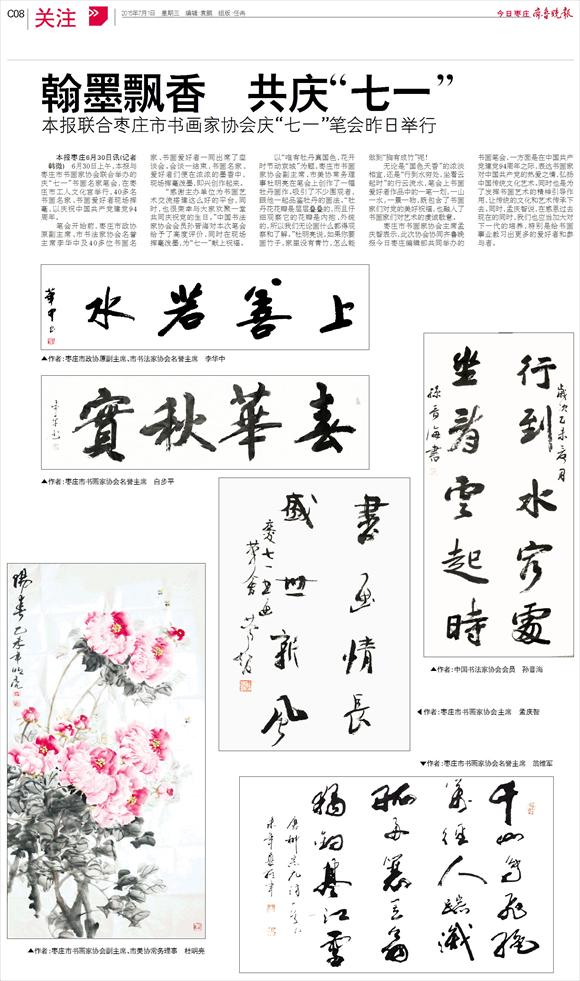 C08
关注
2015年7月1日 星期三 编辑:袁鹏 组版:任冉
今日枣庄 齐鲁晚报
翰墨飘香 共庆“七一”
本报联合枣庄市书画家协会庆“七一”笔会昨日举行
本报枣庄6月30日讯(记者
6月30日上午,本报与
枣庄市书画家协会联合举办的
庆“七一”书画名家笔会,在枣
庄市工人文化宫举行,40多名
书画名家、书画爱好者现场挥
毫,以庆祝中国共产党建党94
周年。
笔会开始前,枣庄市政协
原副主席、市书法家协会名誉
主席李华中及40多位书画名
家、书画爱好者一同出席了座
谈会。会谈一结束,书画名家、
爱好者们便在浓浓的墨香中,
现场挥毫泼墨,即兴创作起来。
“感谢主办单位为书画艺
术交流搭建这么好的平台,同
时,也很荣幸与大家欢聚一堂
共同庆祝党的生日。”中国书法
家协会会员孙晋海对本次笔会
给予了高度评价,同时在现场
挥毫泼墨,为“七一”献上祝福。
以“唯有牡丹真国色,花开
时节动京城”为题,枣庄市书画
家协会副主席、市美协常务理
事杜明亮在笔会上创作了一幅
牡丹画作,吸引了不少围观者,
跟他一起品鉴牡丹的画法。“牡
丹花花瓣是层层叠叠的,而且仔
细观察它的花瓣是内抱、外绕
的,所以我们无论画什么都得观
察和了解。”杜明亮说,如果你要
画竹子,家里没有青竹,怎么能
做到“胸有成竹”呢!
无论是“国色天香”的浓淡
相宜,还是“行到水穷处,坐看云
起时”的行云流水,笔会上书画
爱好者作品中的一笔一划、一山
一水、一景一物,既包含了书画
家们对党的美好祝福,也融入了
书画家们对艺术的虔诚敬意。
枣庄市书画家协会主席孟
庆智表示,此次协会协同齐鲁晚
报今日枣庄编辑部共同举办的
书画笔会,一方面是在中国共产
党建党94周年之际,表达书画家
对中国共产党的热爱之情,弘扬
中国传统文化艺术,同时也是为
了发挥书画艺术的精神引导作
用,让传统的文化和艺术传承下
去。同时,孟庆智说,在感恩过去
现在的同时,我们也应当加大对
下一代的培养,特别是给书画
事业教习出更多的爱好者和参
与者。
上善若水
华中书
▲作者:枣庄市政协原副主席、市书法家协会名誉主席 李华中
春华秋实
▲作者:枣庄市书画家协会名誉主席 白步平
行到水穷处
坐看云起时
孙晋海书
▲作者:中国书法家协会会员 孙晋海
书画情长
盛世新风
◀作者:枣庄市书画家协会主席 孟庆智
▼作者:枣庄市书画家协会名誉主席 翁维军
千山鸟飞绝
万径人踪灭
孤舟蓑笠翁
独钓寒江雪
▲作者:枣庄市书画家协会副主席、市美协常务理事 杜明亮